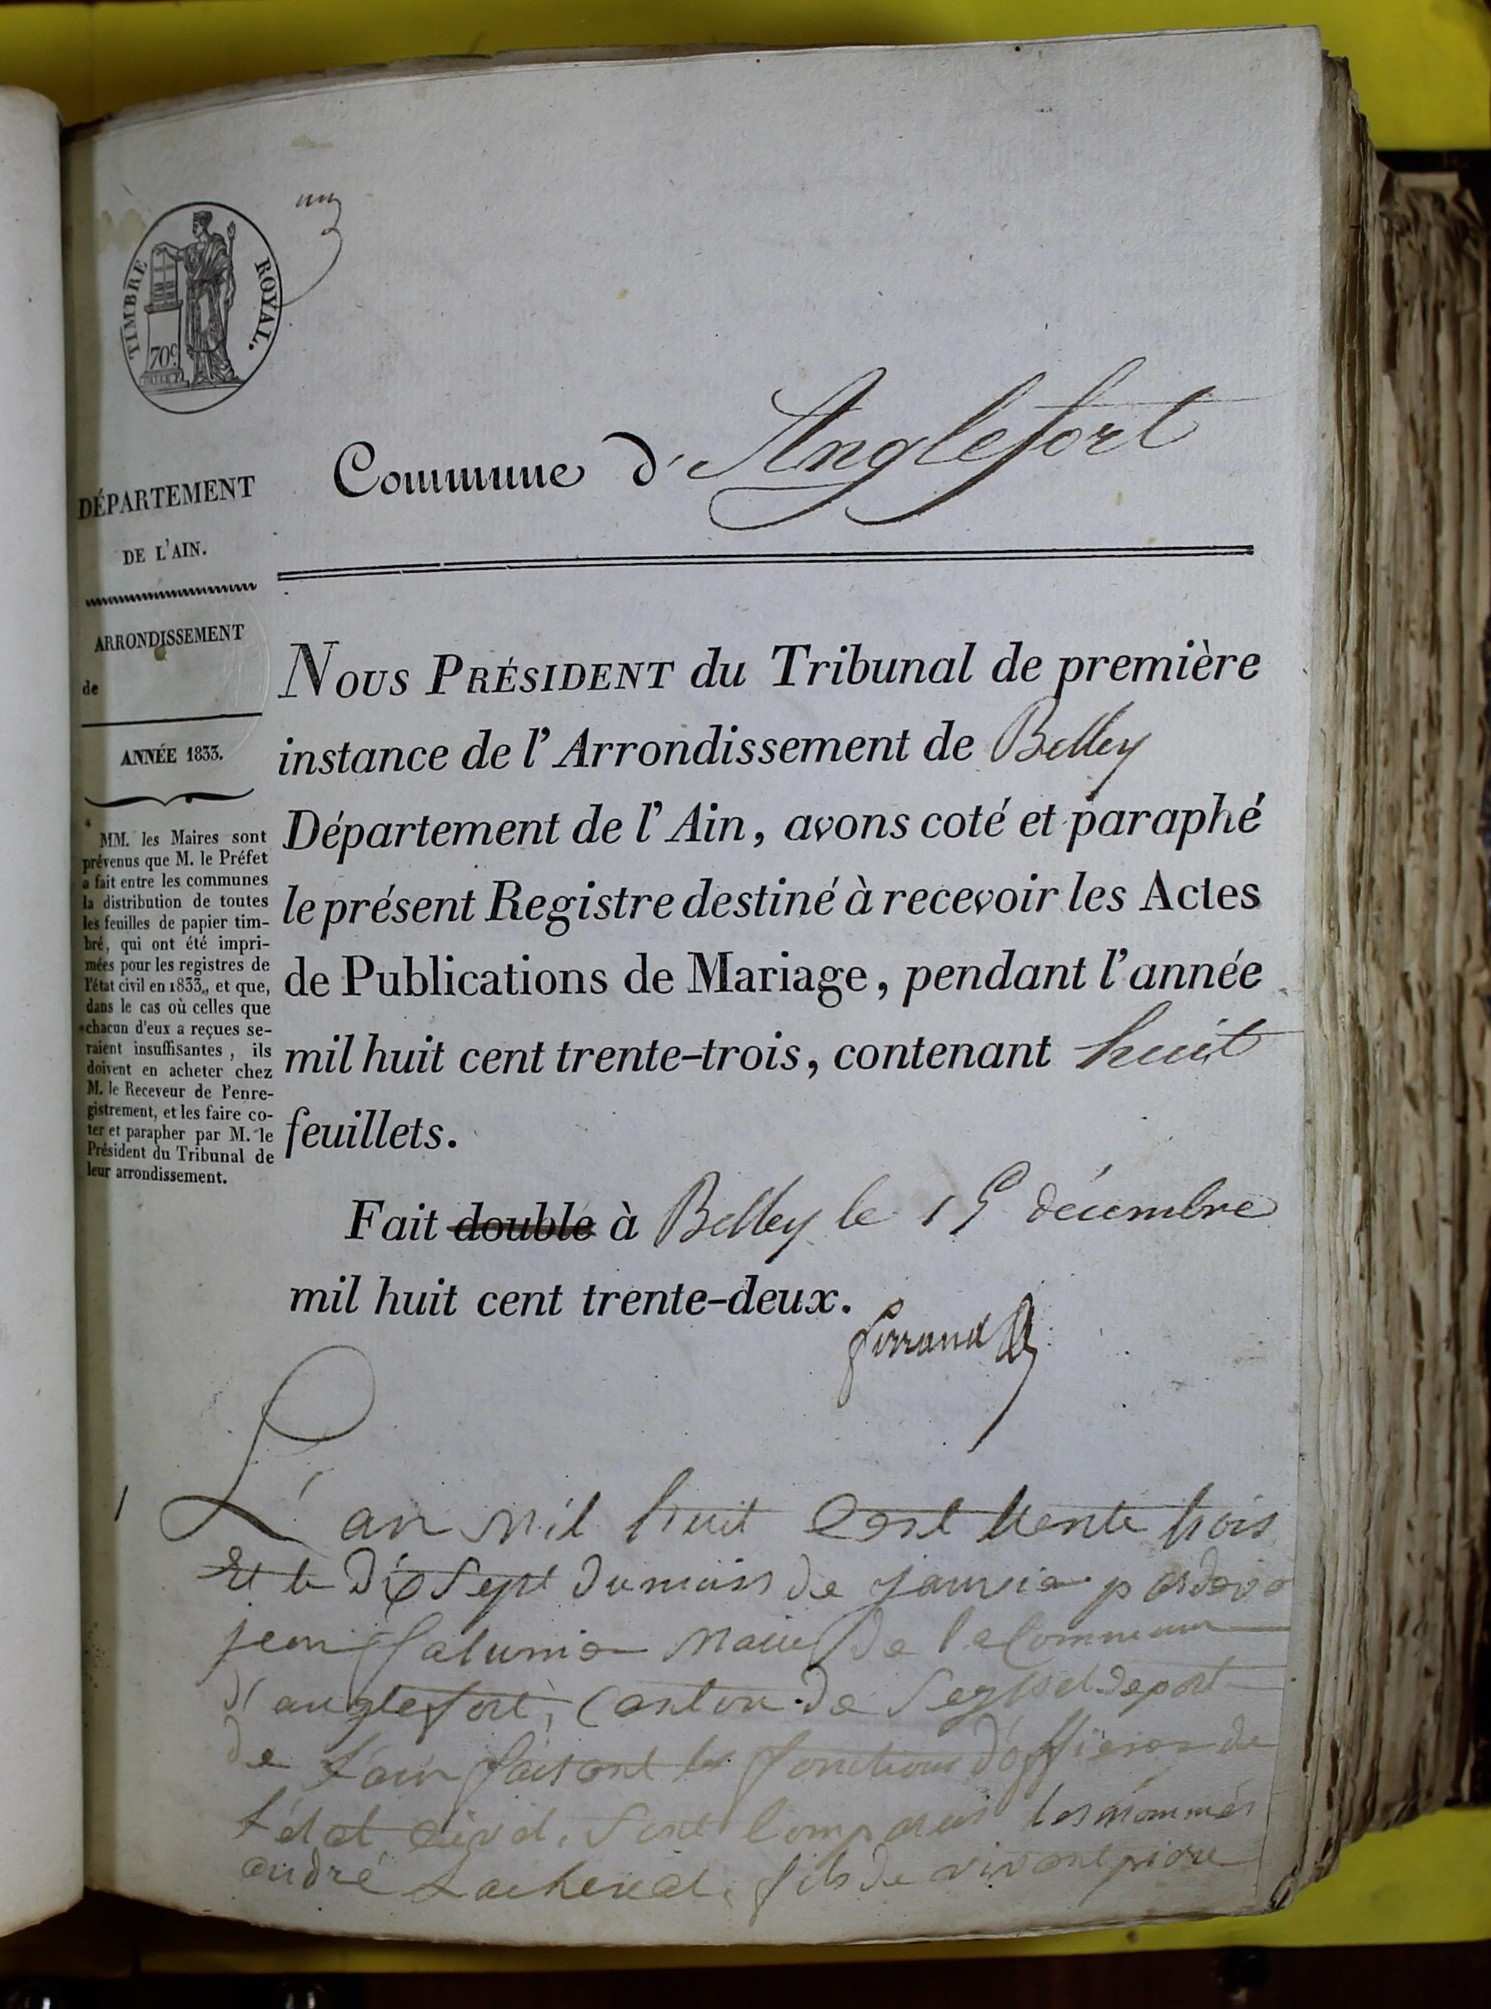 TIMBRE ROYAL.
70c.
DÉPARTEMENT
DE L'AIN.
ARRONDISSEMENT
de
ANNÉE 1833.
MM. les Maires sont
prévenus que M. le Préfet
a fait entre les communes
la distribution de toutes
les feuilles de papier tim-
bré, qui ont été impri-
mées pour les registres de
l'état civil en 1833, et que,
dans le cas où celles que
chacun d'eux a reçues se-
raient insuffisantes, ils
doivent en acheter chez
M. le Receveur de l'enre-
gistrement, et les faire co-
ter et parapher par M. le
Président du Tribunal de
leur arrondissement.
Commune d'Anglefort
NOUS PRÉSIDENT du Tribunal de première
instance de l'Arrondissement de Belley
Département de l'Ain, avons coté et paraphé
le présent Registre destiné à recevoir les Actes
de Publications de Mariage, pendant l'année
mil huit cent trente-trois, contenant huit
feuillets.
Fait double à Belley le 15 décembre
mil huit cent trente-deux.
1
L'an mil huit cent trente trois
Et le dix Sept du mois de janvier pardevo
jean maire de la Commune
d'anglefort, Canton de Seyssel depart
de L'ain faisant les fonctions d'officier de
L'état civil, Sont Comparus les nommés
andré Lacheriat, fils de vivant piere